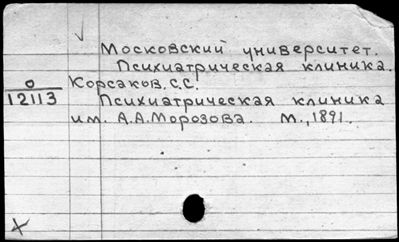 Московский университет.
Психиатрическая клиника.
О
12113
Корсаков. С.С.
Психиатрическая клиника
им. А.А. Морозова. М., 1891.